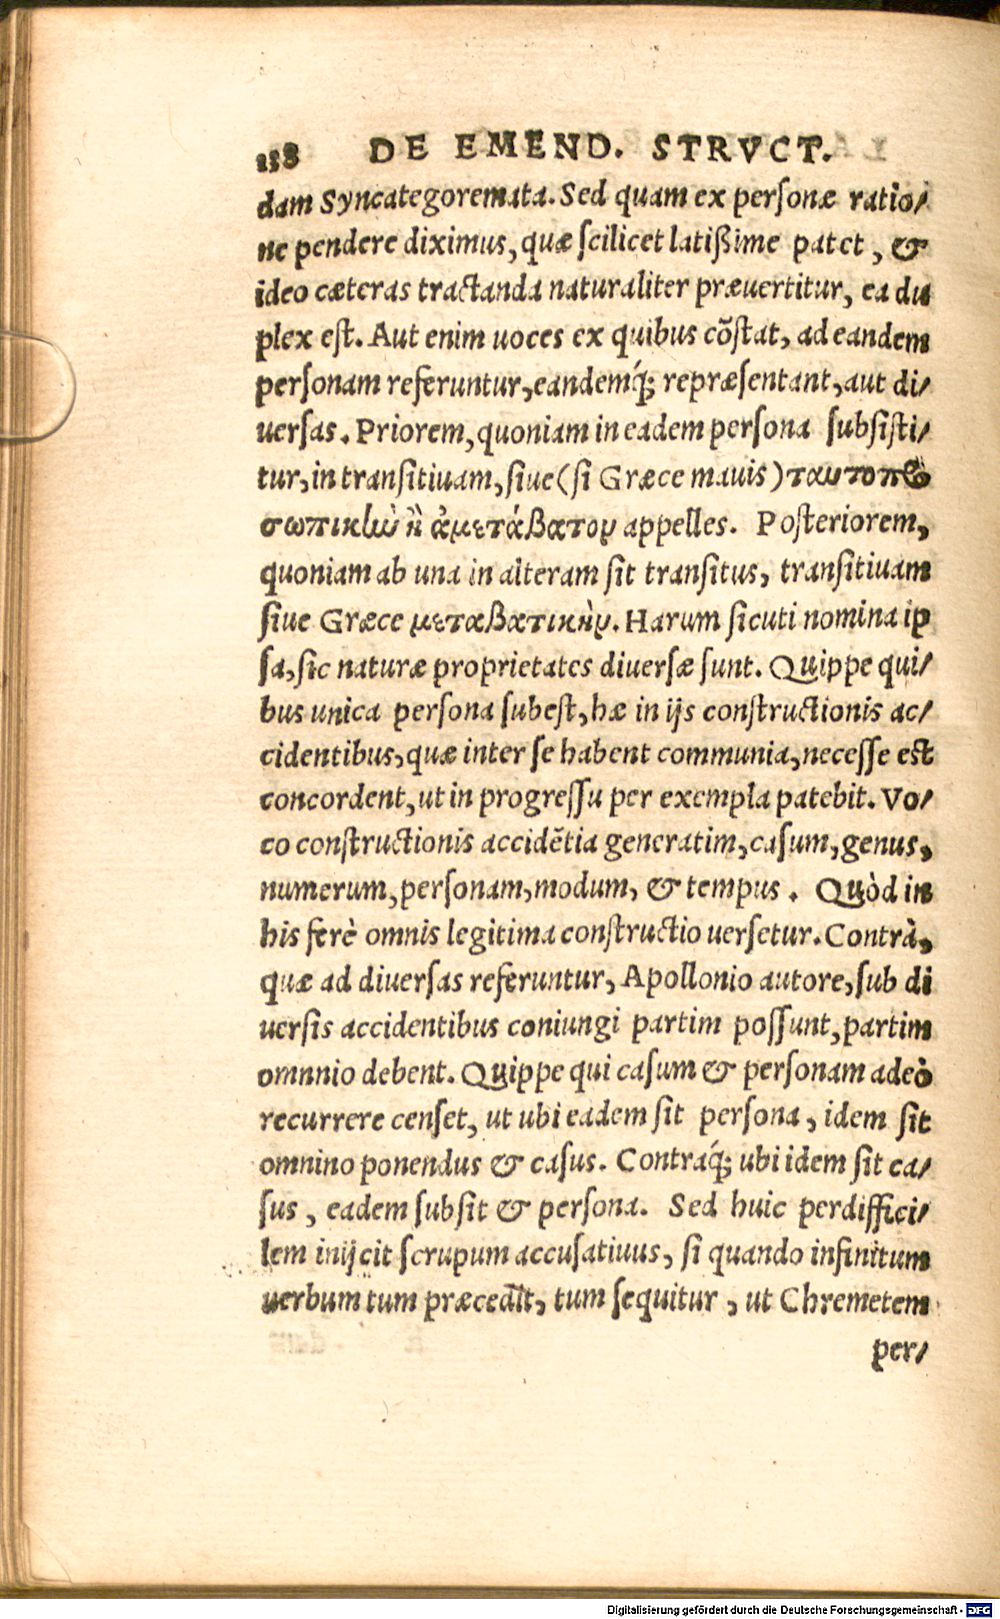 158 DE EMEND. STRVCT.
dam Syncategoremata. Sed quam ex personæ ratio/
ne pendere diximus, quæ scilicet latißime patet, &
ideo cæteras tractanda naturaliter præuertitur, ea du
plex est. Aut enim uoces ex quibus cõstat, ad eandem
personam referuntur, eandemq́; repræsentant, aut di/
uersas. Priorem, quoniam in eadem persona subsisti/
tur, in transitiuam, siue (si Græce mauis) ταυτοπρο
σωπικὴν ἢ ἀμετάβατον appelles. Posteriorem,
quoniam ab una in alteram sit transitus, transitiuam
siue Græce μεταβατικὴν. Harum sicuti nomina ip
sa, sic naturæ proprietates diuersæ sunt. Quippe qui/
bus unica persona subest, hæ in ijs constructionis ac/
cidentibus, quæ inter se habent communia, necesse est
concordent, ut in progressu per exempla patebit. Vo/
co constructionis accidẽtia generatim, casum, genus,
numerum, personam, modum, & tempus. Quòd in
his ferè omnis legitima constructio uersetur. Contrà,
quæ ad diuersas referuntur, Apollonio autore, sub di
uersis accidentibus coniungi partim possunt, partim
omnnio debent. Quippe qui casum & personam adeò
recurrere censet, ut ubi eadem sit persona, idem sit
omnino ponendus & casus. Contraq́; ubi idem sit ca/
sus, eadem subsit & persona. Sed huic perdiffici/
lem inijcit scrupum accusatiuus, si quando infinitum
uerbum tum præcedit, tum sequitur, ut Chremetem
per/
Digitalisierung gefördert durch die Deutsche Forschungsgemeinschaft - DFG